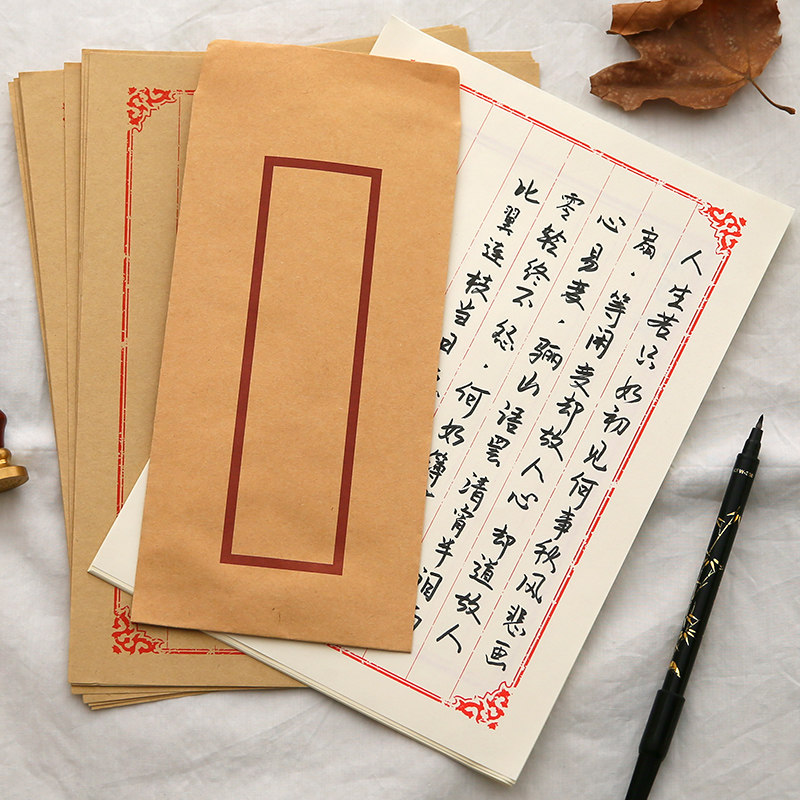 人生若只如初见何事秋风悲画
扇，等闲变却故人心却道故人
心易变，骊山语罢清宵半泪
零铃终不怨，何如薄
比翼连枝当日